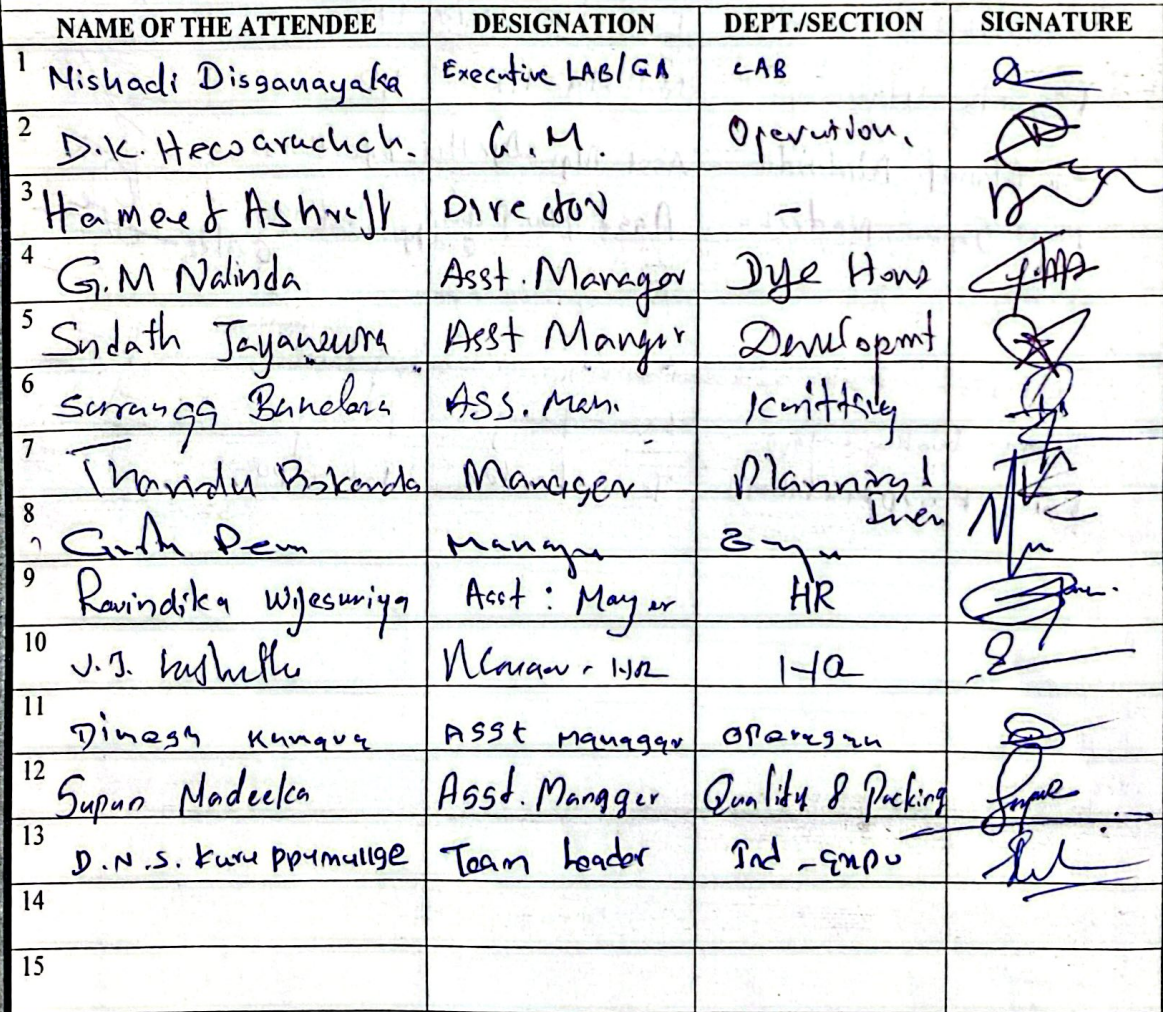 NAME OF THE ATTENDEE DESIGNATION DEPT./SECTION SIGNATURE
1 Mishadi Disganayaka Executive LAB/GA LAB
2 D.K. Hecoaruchch. G.M. Operation.
3 Hameed Ashraff Director -
4 G.M Nalinda Asst. Manager Dye Hous
5 Sudath Jayaneura Asst Manger Developmt
6 Suranga Bandara Ass. Man. Knitting
7 Tharidu Manager Planning /
8 Manager
9 Ravindika Wijesuriya Asst : Mayer HR
10 V.J. HR
11 Dinesh Asst Manager
12 Supun Madeeka Asst. Manager Quality & Packing
13 D.N.S. Kuruppumullge Team Leader Ind
14
15